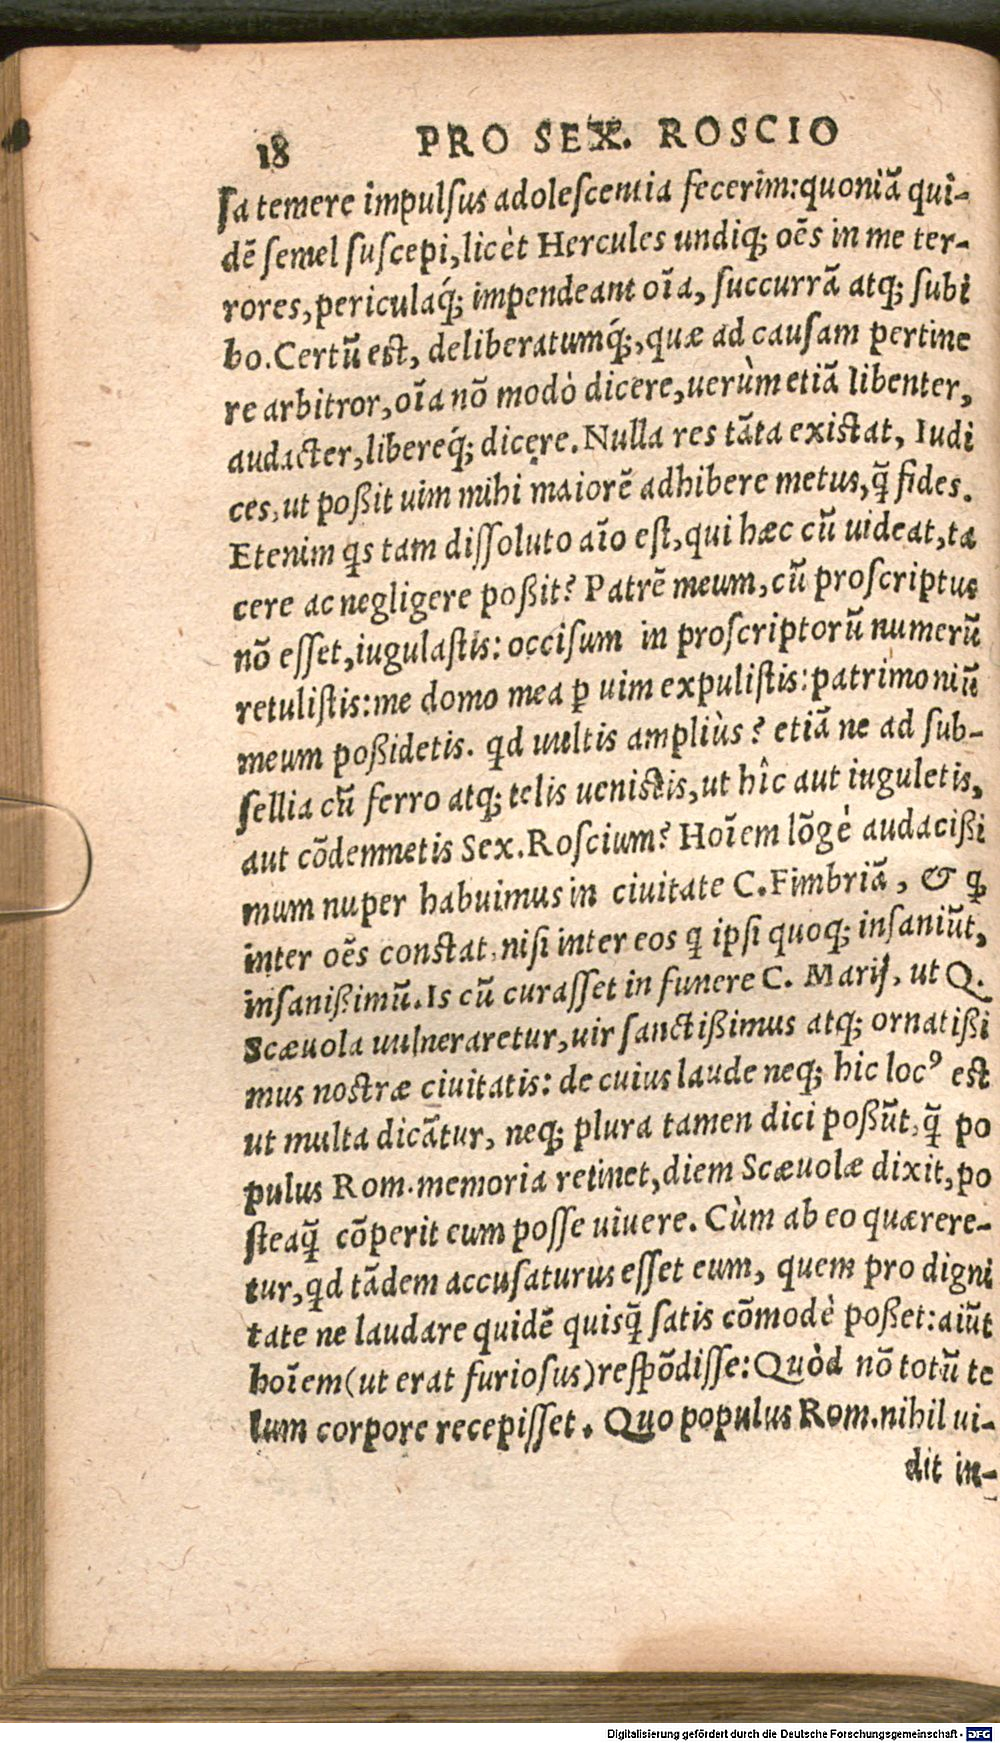 18 PRO SEX. ROSCIO
ſa temere impulſus adoleſcentia fecerim:quoniã qui-
dẽ ſemel ſuſcepi,licèt Hercules undiq; oẽs in me ter-
rores,periculaq́; impendeant oĩa, ſuccurrã atq; ſubi
bo.Certũ eſt, deliberatumq́;,quæ ad cauſam pertine
re arbitror,oĩa nõ modò dicere,uerùm etiã libenter,
audacter,libereq́; dicere.Nulla res tãta exiſtat, Iudi
ces,ut poßit uim mihi maiorẽ adhibere metus,q̃ fides.
Etenim qs tam diſſoluto aĩo eſt,qui hæc cũ uideat,ta
cere ac negligere poßit? Patrẽ meum,cũ proſcriptus
nõ eſſet,iugulaſtis: occiſum in proſcriptorũ numerũ
retuliſtis:me domo mea ꝑ uim expuliſtis:patrimoniũ
meum poßidetis. qd uultis ampliùs? etiã ne ad ſub-
ſellia cũ ferro atq; telis ueniſtis,ut hîc aut iuguletis,
aut cõdemnetis Sex.Roſcium? Hoĩem lõgè audacißi
mum nuper habuimus in ciuitate C.Fimbriã, & q
inter oẽs conſtat,niſi inter eos q ipſi quoq; inſaniũt,
inſanißimũ.Is cũ curaſſet in funere C. Marij, ut Q.
Scæuola uulneraretur,uir ſanctißimus atq; ornatißi
mus noſtræ ciuitatis: de cuius laude neq; hic locꝰ eſt
ut multa dicãtur, neq; plura tamen dici poßũt,q̃ po
pulus Rom.memoria retinet,diem Scæuolæ dixit,po
ſteaq̃ cõperit eum poſſe uiuere.Cùm ab eo quærere-
tur,qd tãdem accuſaturus eſſet eum, quem pro digni
tate ne laudare quidẽ quisq̃ ſatis cõmodè poßet:aiũt
hoĩem(ut erat furioſus)reſpõdiſſe:Quòd nõ totũ te
lum corpore recepiſſet. Quo populus Rom.nihil ui-
dit in-
Digitalisierung gefördert durch die Deutsche Forschungsgemeinschaft - DFG